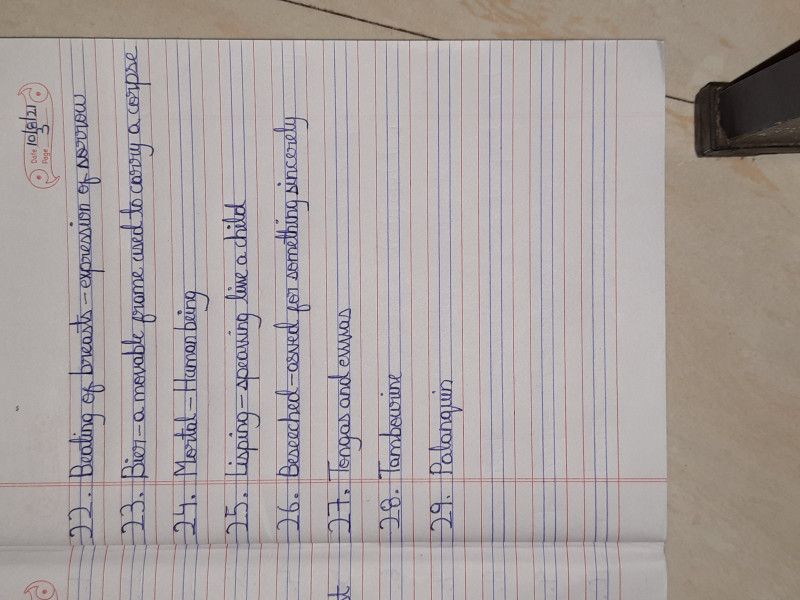 Date 10/8/21
Page 3
22. Beating of breasts - expression of sorrow
23. Bier - a movable frame used to carry a corpse
24. Mortal - Human being
25. Lisping - speaking like a child
26. Beseeched - asked for something sincerely
27. Tongas and ekkas
28. Tambourine
29. Palanquin
st